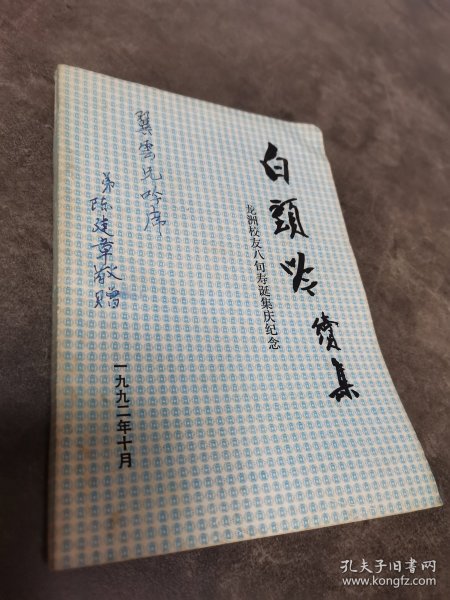 白頭吟續集
龙洲校友八旬寿诞集庆纪念
翼雲兄吟席
弟
陈建章敬赠
一九九二年十月
孔夫子旧书网
www.kongfz.com